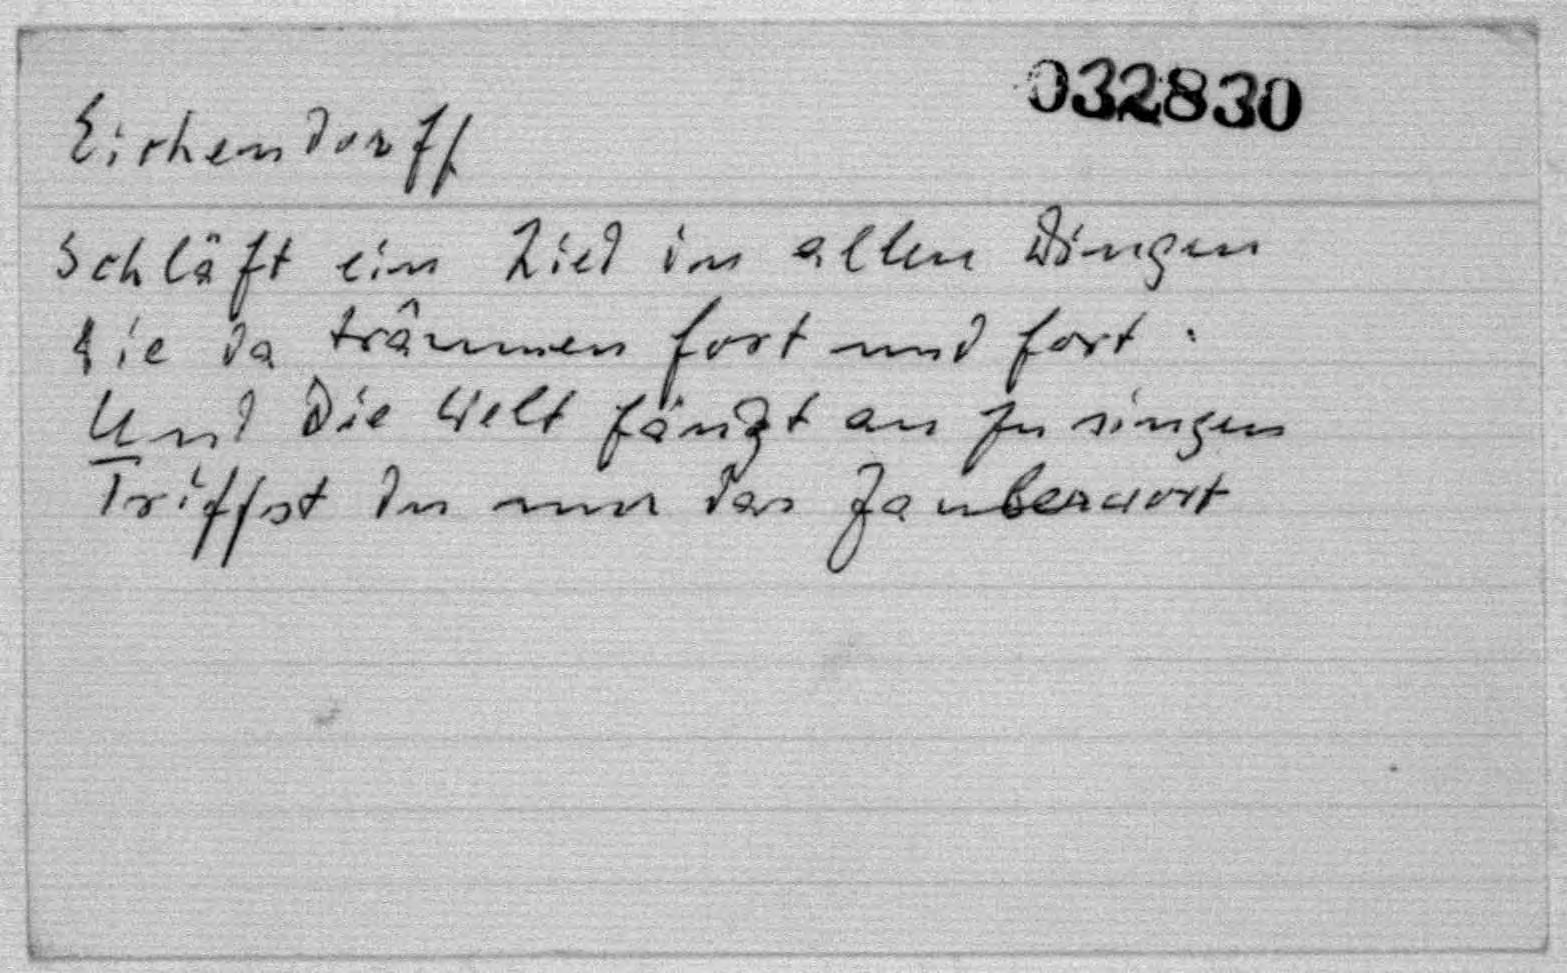 032830
Eichendorff
Schläft ein Lied in allen Dingen
die da träumen fort und fort.
Und die Welt fängt an zu singen
Triffst du nur das Zauberwort